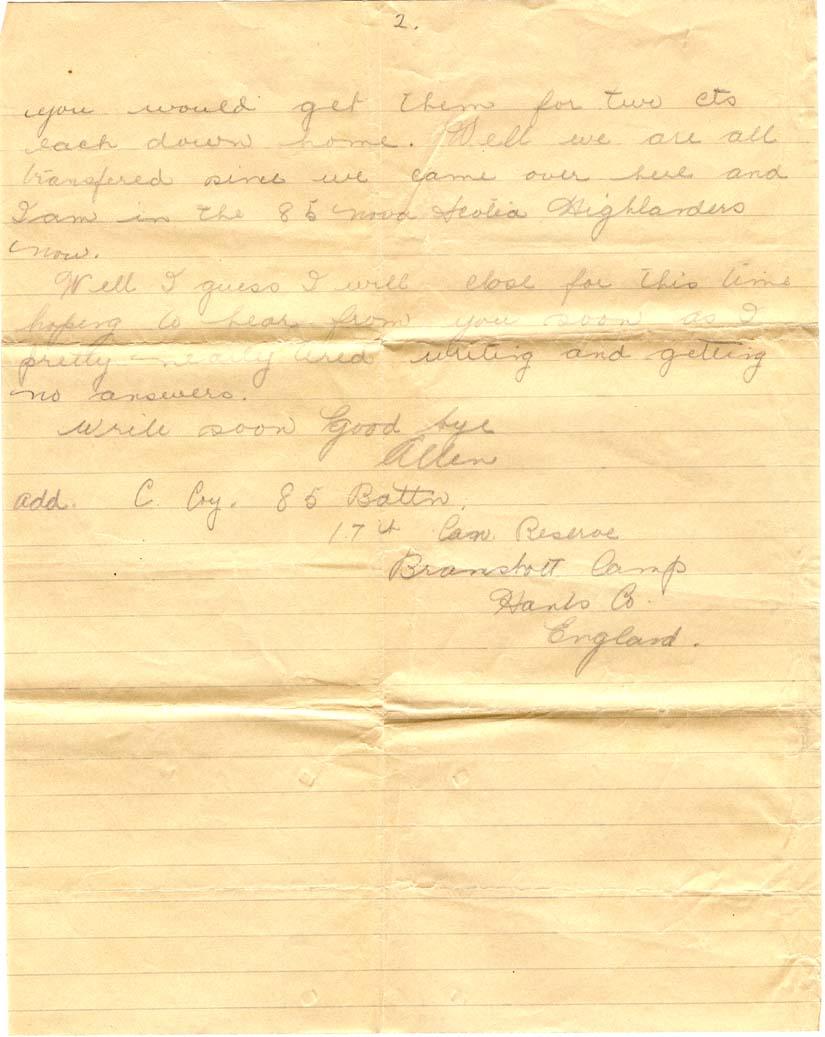 2.
you would get them for two cts
each down home. Well we are all
transfered since we came over here and
I am in the 85 Nova Scotia Highlanders
now.
Well I guess I will close for this time
hoping to hear from you soon as I
pretty nearly tired writing and getting
no answers.
Write soon Good bye
Allen
add. C. Coy. 85 Battn.
17th Can. Reserve
Bramshott Camp
Hants Co.
England.